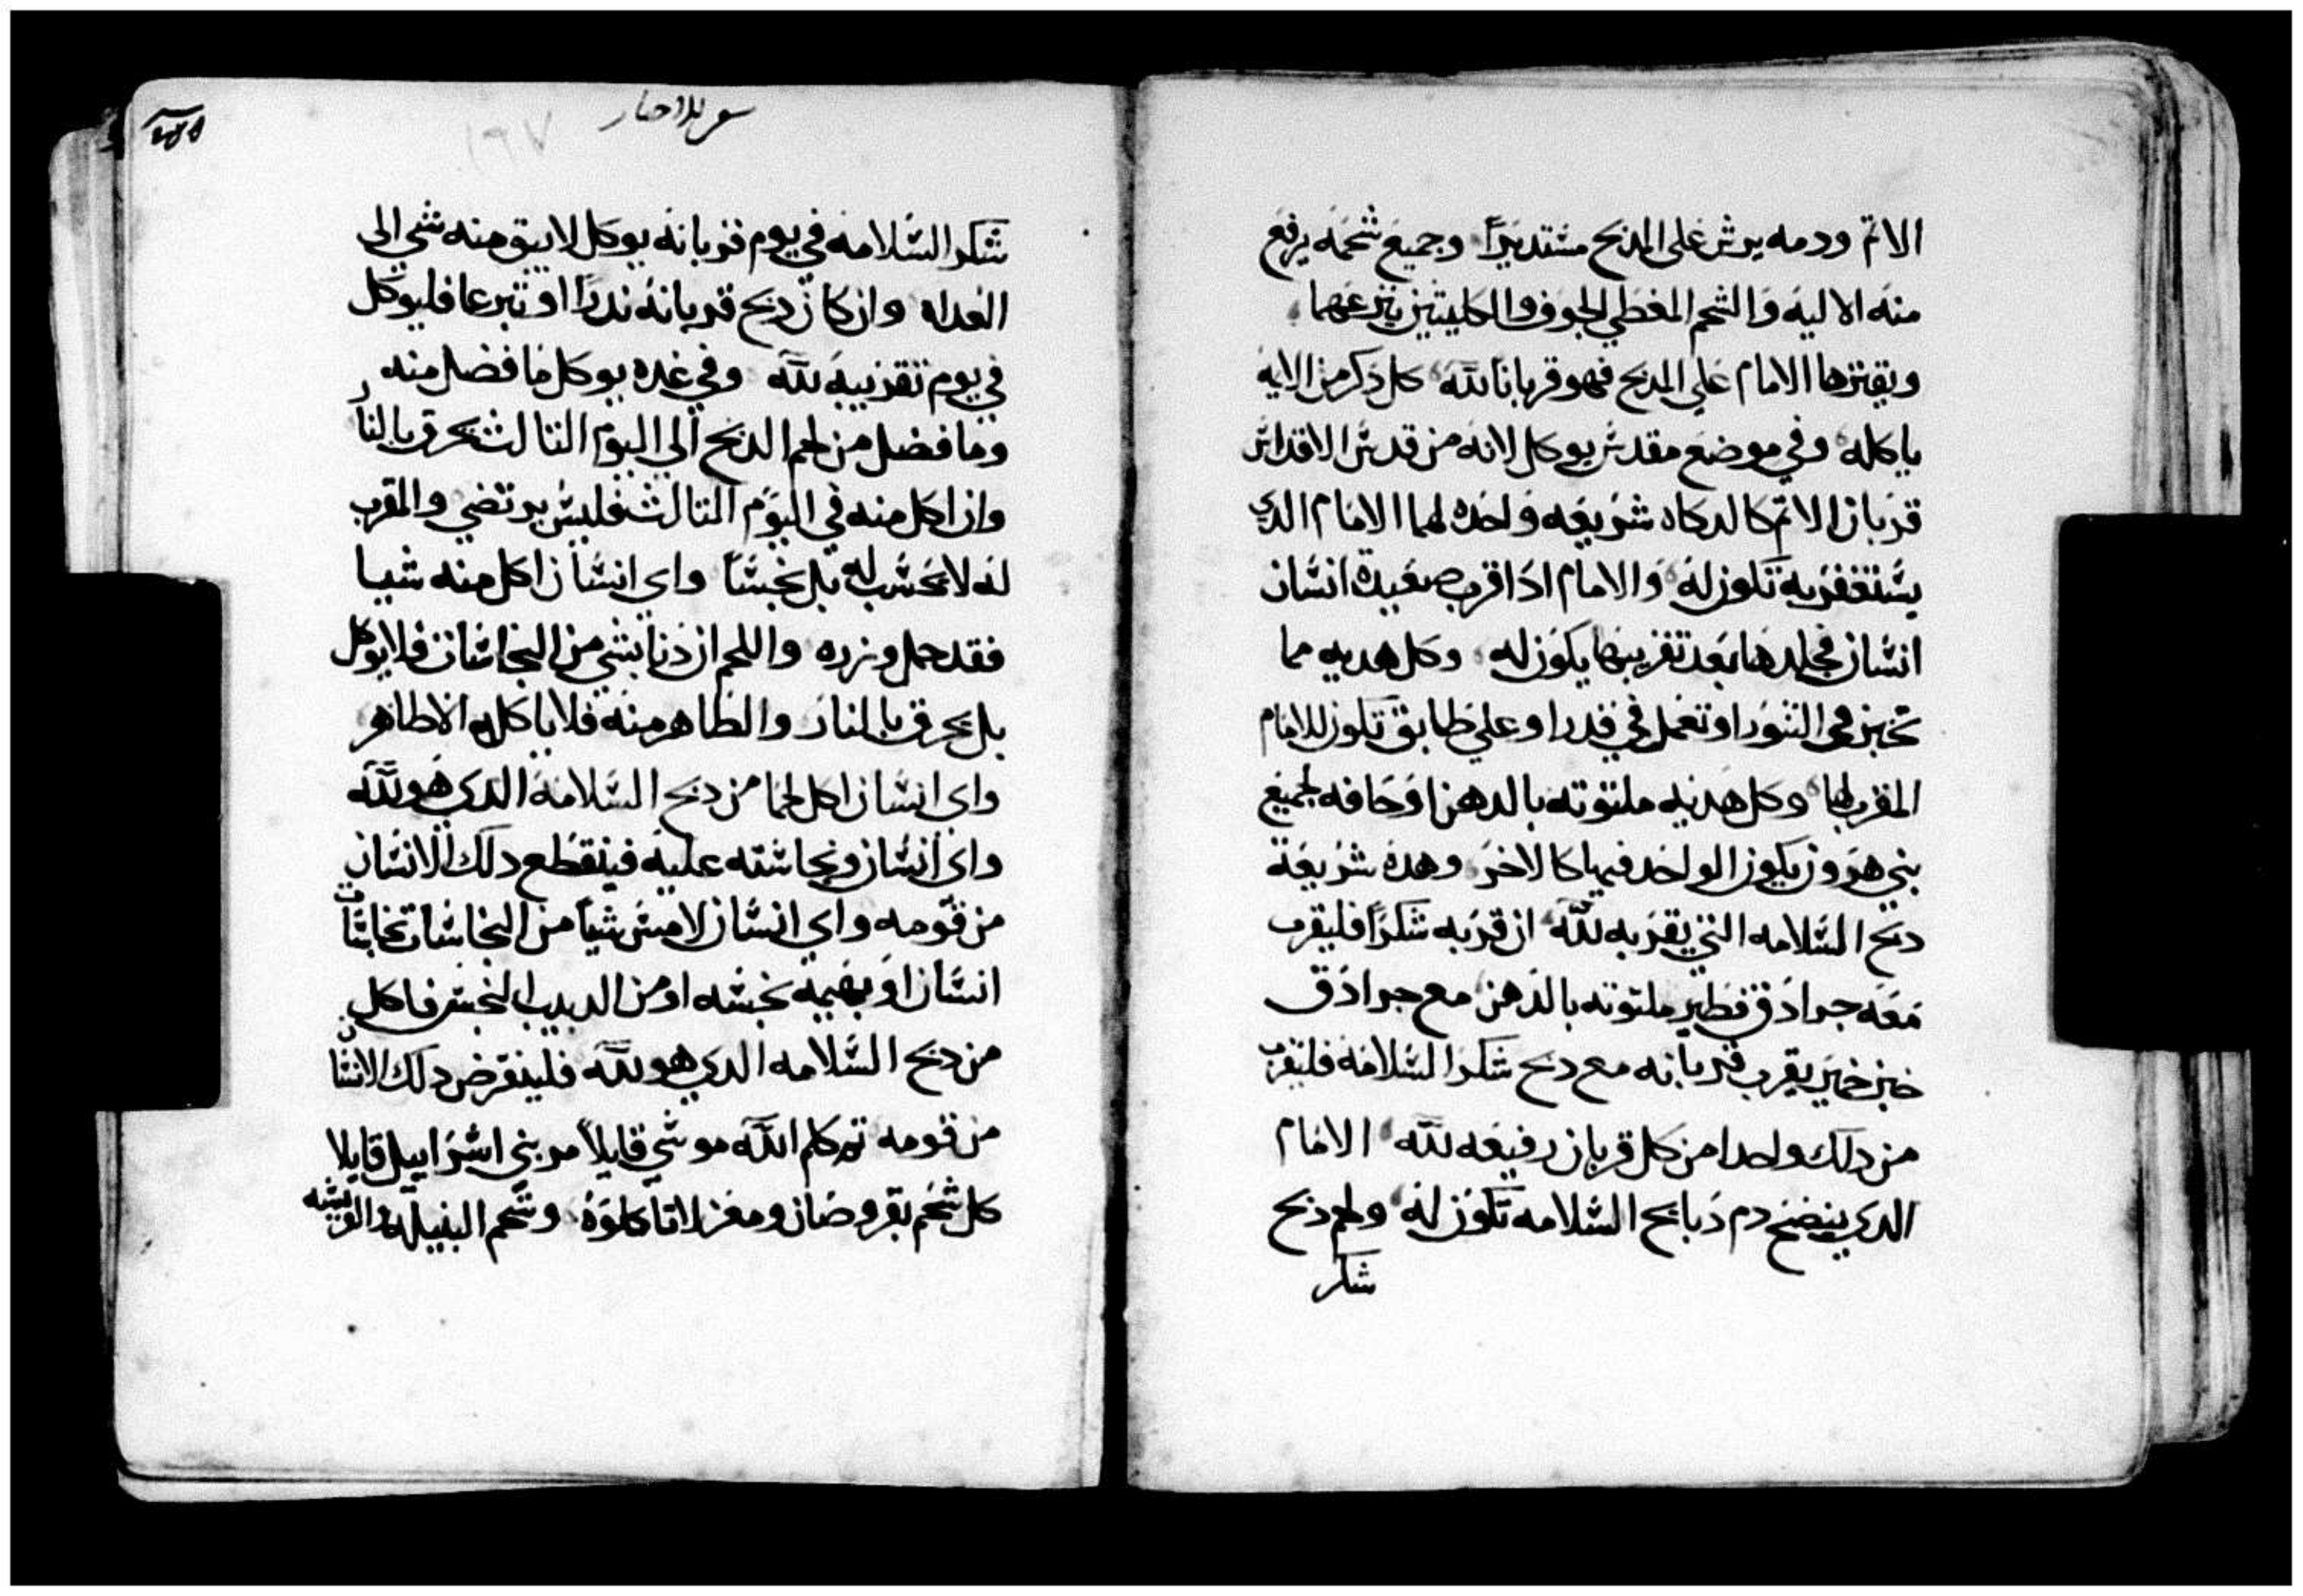 الاتم ودمه يرش على المدبح مستديرًا وجميع شحمه يرفع
منه الاليه والشحم المغطي الجوف والكليتين ينزعهما
ويقترها الامام على المدبح فهو قربانا لله كل دكر من الايه
ياكله وفي موضع مقدس يوكل لانه من قدس الاقداس
قربان الاتم كالدكاه شريعه واحده لهما الامام الدي
يستغفر به تكون له والامام ادا قرب صعيدة انسان
انسان فجلدها بعد تقريبها يكون له وكل هديه مما
تخبز في التنور او تعمل في قدر او على طابق تكون للامام
المقرب لها وكل هديه ملتوته بالدهن او جافه لجميع
بني هرون يكون الواحد فيها كالاخر وهده شريعة
دبح السلامه التي يقربه لله ان قربه شكرًا فليقرب
معه جرادق فطير ملتوته بالدهن مع جرادق
خبز خمير يقرب قربانه مع دبح شكر السلامه فليقرب
من دلك واحدا من كل قربان رفيعه لله الامام
الدي ينضح دم دبايح السلامه تكون له ولحم دبح
شكر
سفر الاحبار
شكر السلامه في يوم قربانه يوكل لا يبق منه شي الى
الغداه وان كان دبح قربانه ندرًا او تبرعا فليوكل
في يوم تقريبه لله وفي غده يوكل ما فضل منه
وما فضل من لحم الدبح الي اليوم التالت يحرق بالنار
وان اكل منه في اليوم التالت فليس يرتضي والمقرب
له لا يحسب له بل نجسًا واي انسان اكل منه شيا
فقد حمل وزره واللحم ان دنا بشي من النجاسات فلا يوكل
بل يحرق بالنار والطاهر منه فلا ياكله الا طاهر
واي انسان اكل لحما من دبح السلامة الدي هو لله
واي انسان ونجاسته عليه فينقطع دلك الانسان
من قومه واي انسان لامس شيا من النجاسات نجاسات
انسان او بهيمه نجسه او من الدبيب النجس فاكل
من دبح السلامه الدي هو لله فلينقرض دلك الانسان
من قومه تم كلم الله موسي قايلاً مر بني اسراييل قايلا
كل شحم بقر وضان ومعز لا تاكلوه وشحم النبيله والفريسه